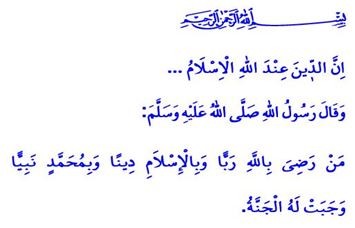 بِسْمِ اللهِ الرَّحْمٰنِ الرَّحِيمِ
اِنَّ الدّ۪ينَ عِنْدَ اللهِ الْاِسْلَامُ ...
وَقَالَ رَسُولُ اللهِ صَلَّى اللهُ عَلَيْهِ وَسَلَّمَ:
مَنْ رَضِيَ بِاللَّهِ رَبًّا وَبِالْإِسْلَامِ دِينًا وَبِمُحَمَّدٍ نَبِيًّا
وَجَبَتْ لَهُ الْجَنَّةُ.